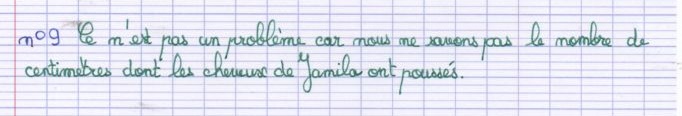 n°9 Ce n'est pas un problème car nous ne savons pas le nombre de
centimètres dont les cheveux de Yamila ont poussés.